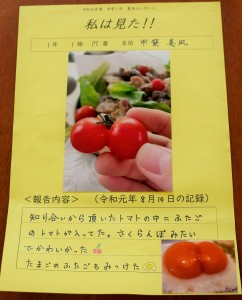 私は見た!!
1年 1組 17番 名前 甲斐 美凪
<報告内容> (令和元年8月14日の記録)
知り合いから頂いたトマトの中にふたご
のトマトが入ってた。さくらんぼみたい
でかわいかった
たまごのふたごもみつけた